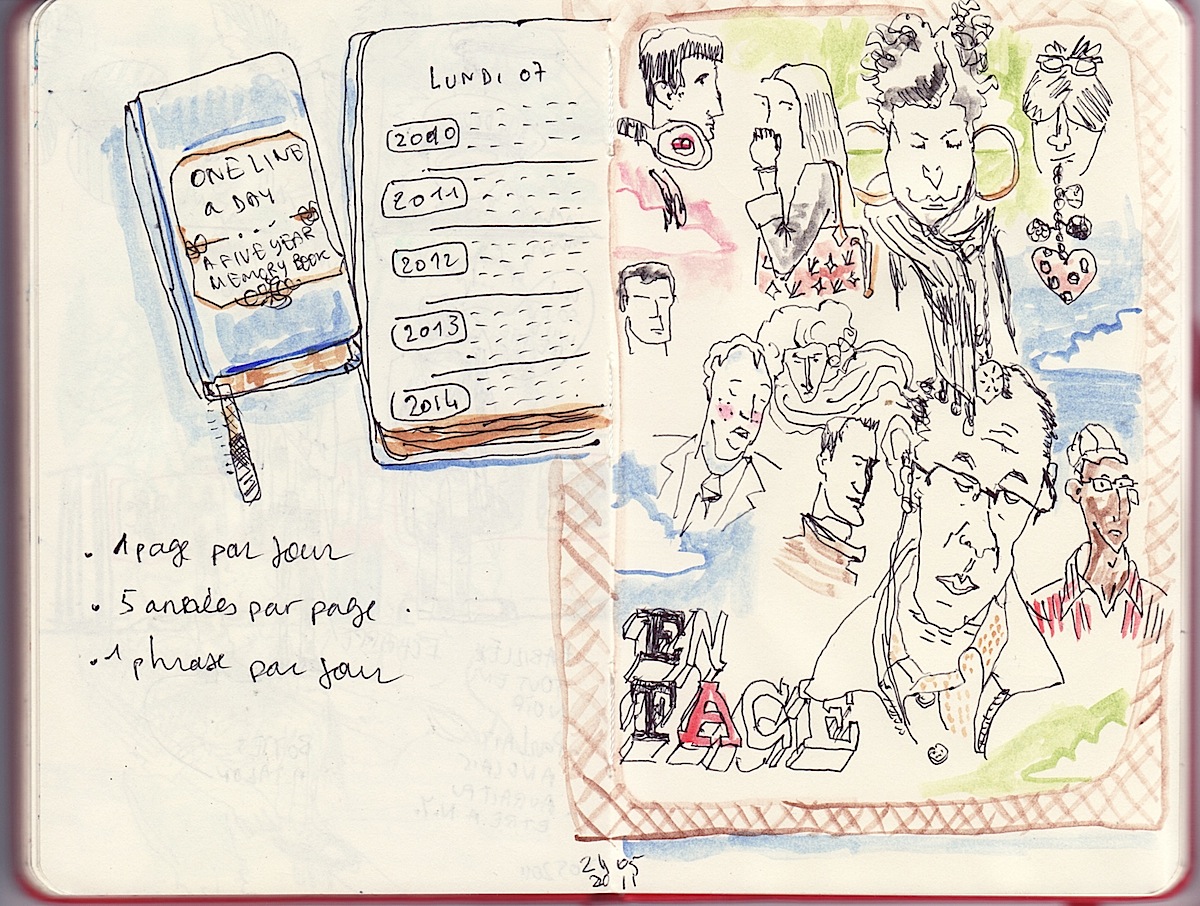 ONE LINE
a DAY
A FIVE YEAR
MEMORY BOOK
LUNDI 07
2010
2011
2012
2013
2014
. 1 page par jour
. 5 années par page .
. 1 phrase par jour
EN
PAGE
24 05
20 11